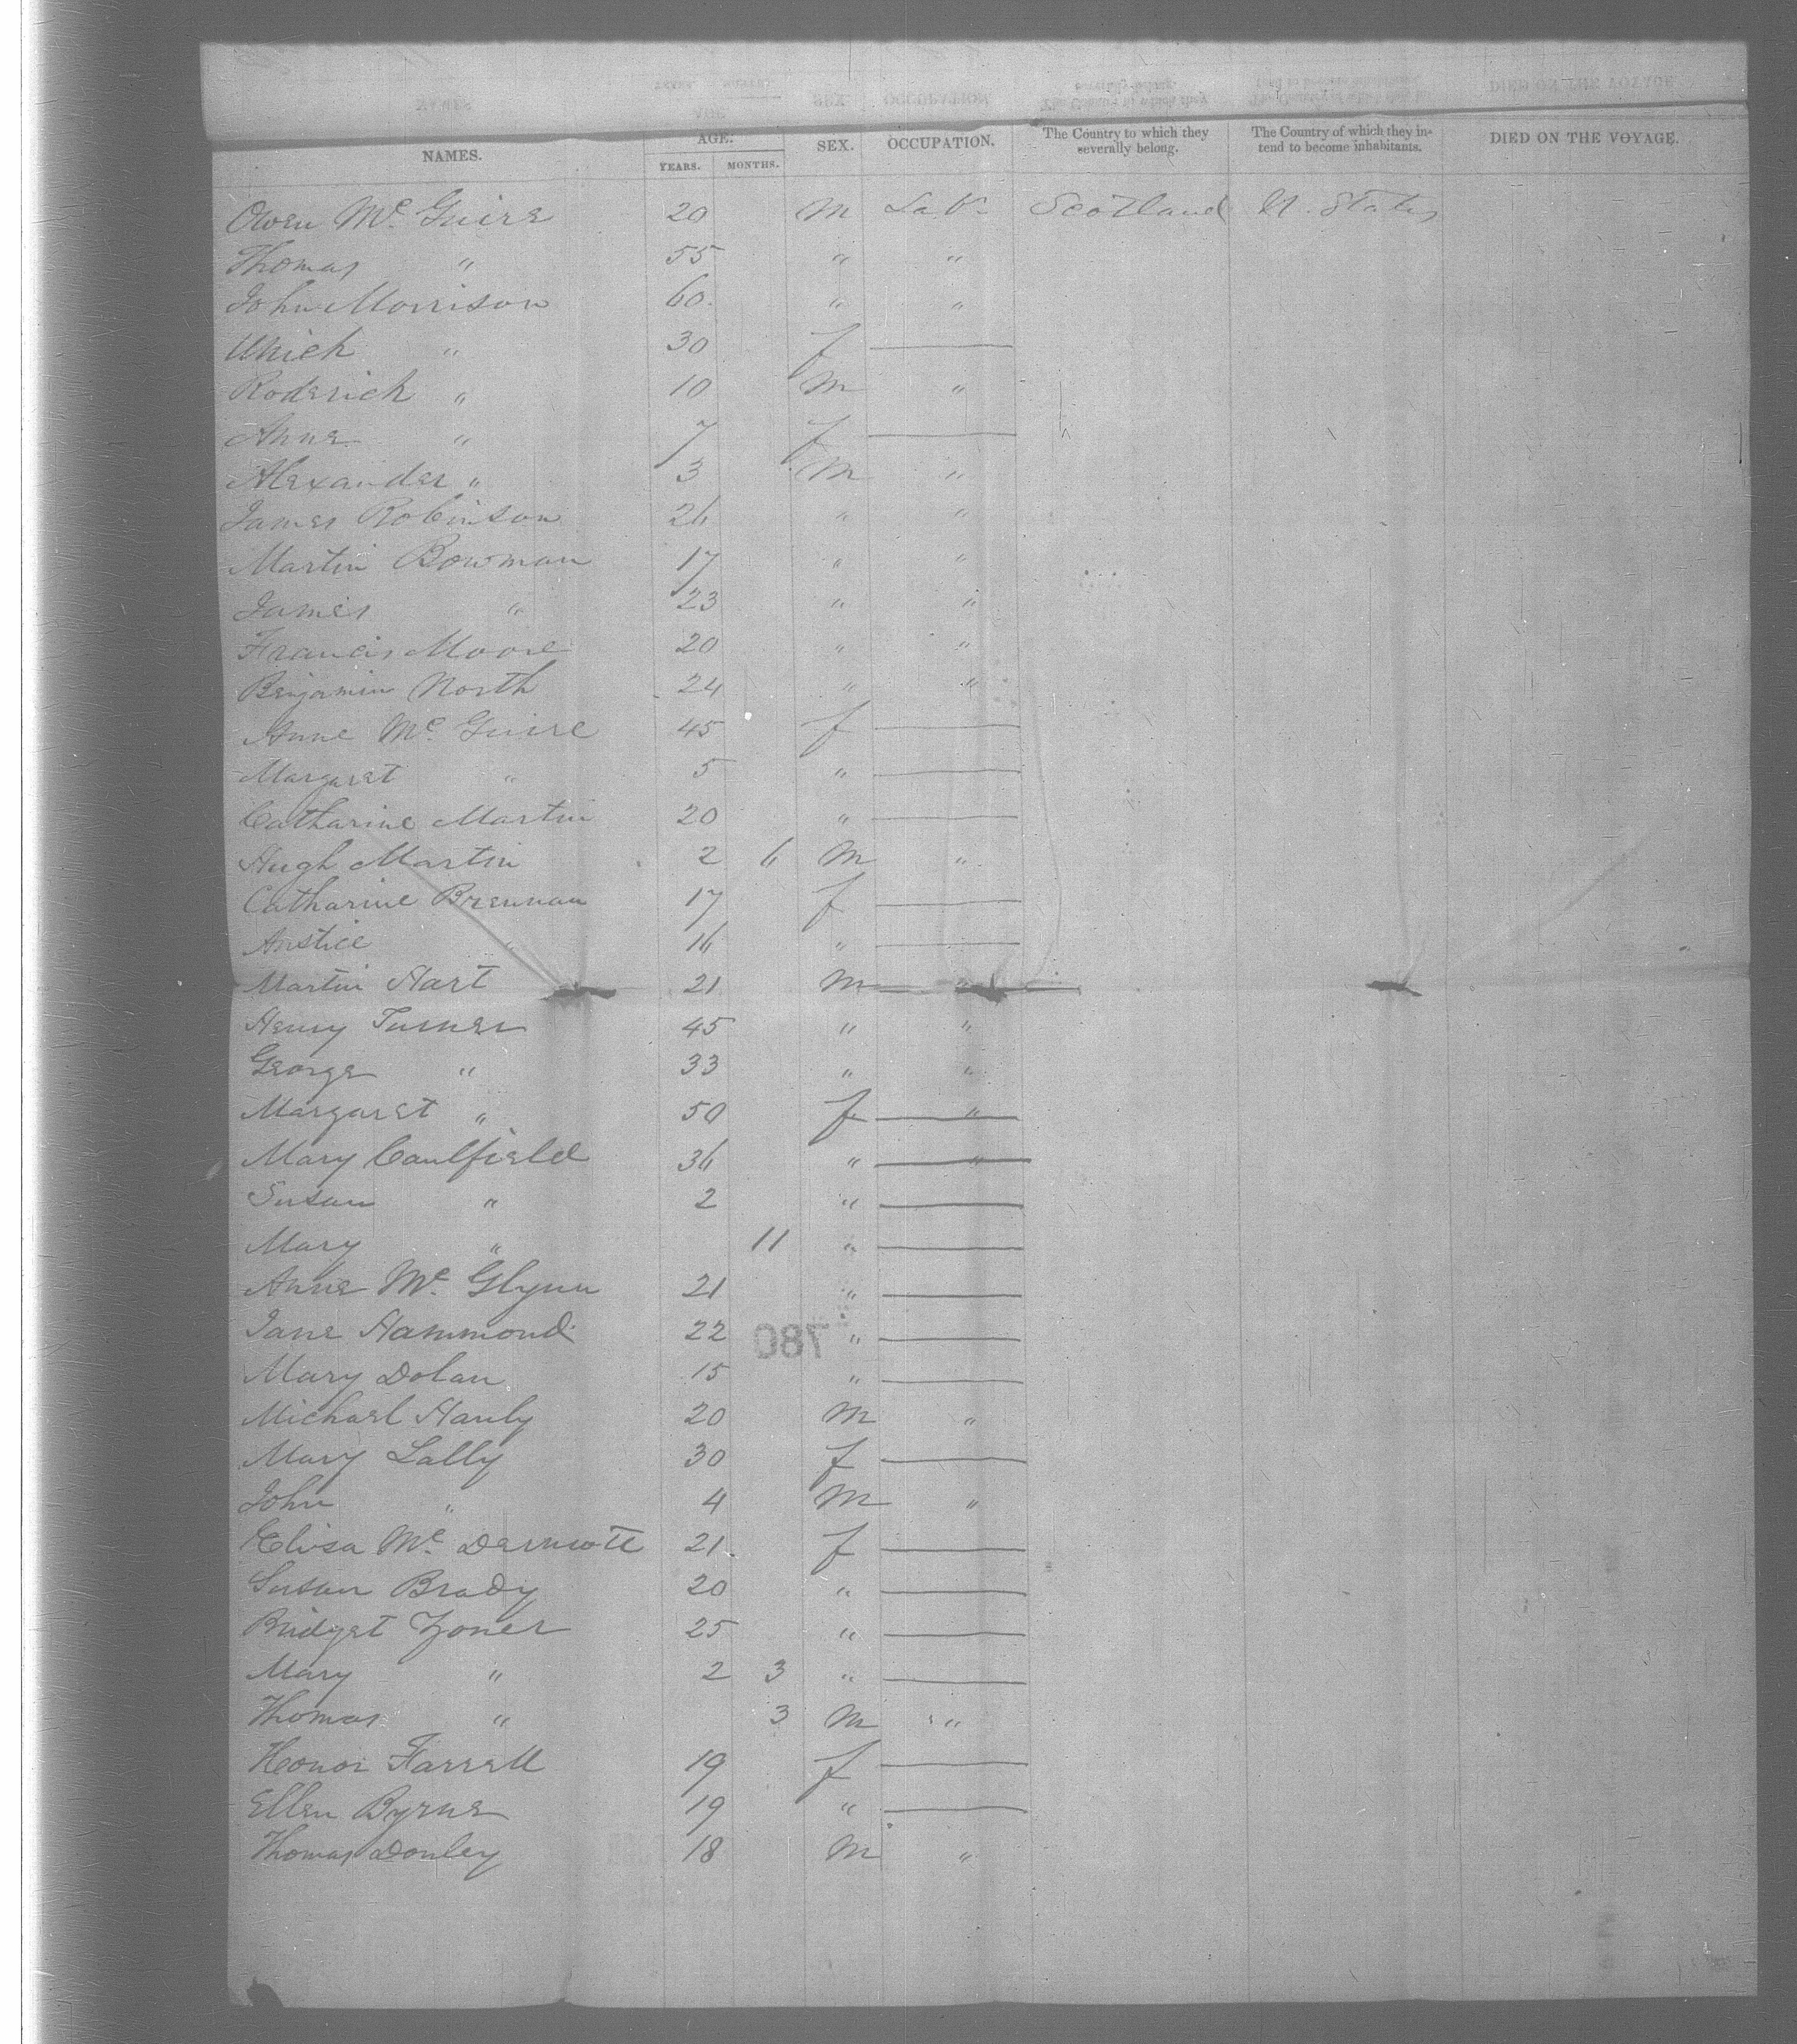 NAMES. AGE. YEARS. MONTHS. SEX. OCCUPATION. The Country to which they severally belong. The Country of which they intend to become inhabitants. DIED ON THE VOYAGE.
Owen Mc. Guire 20 M Lab. Scotland U. States
Thomas " 55 " "
John Morrison 60 " "
30 f —
Roderich " 10 M "
Anne " 7 f —
Alexander " 3 M "
James Robinson 26 " "
Martin Bowman 17 " "
James " 23 " "
Francis Moore 20 " "
Benjamin North 24 " "
Anne Mc. Guire 45 f —
Margaret " 5 " —
Catharine Martin 20 " —
Hugh Martin 2 6 M "
Catharine Brennan 17 f —
Anstice " 16 " —
Martin Hart 21 M "
Henry Turner 45 " "
George " 33 " "
Margaret " 50 f "
Mary Caulfield 36 " "
Susan " 2 " —
Mary " 11 " —
Anne Mc. Glynn 21 " —
Jane Hammond 22 " —
780
Mary Dolan 15 " —
Michael Hanly 20 M "
Mary Lally 30 f —
John " 4 M "
Elisa Mc. Dermott 21 f —
Susan Brady 20 " —
Bridget 25 " —
Mary " 2 3 " —
Thomas " 3 M "
Honor Farrell 19 f —
Ellen Byrne 19 " —
Thomas Donley 18 M "